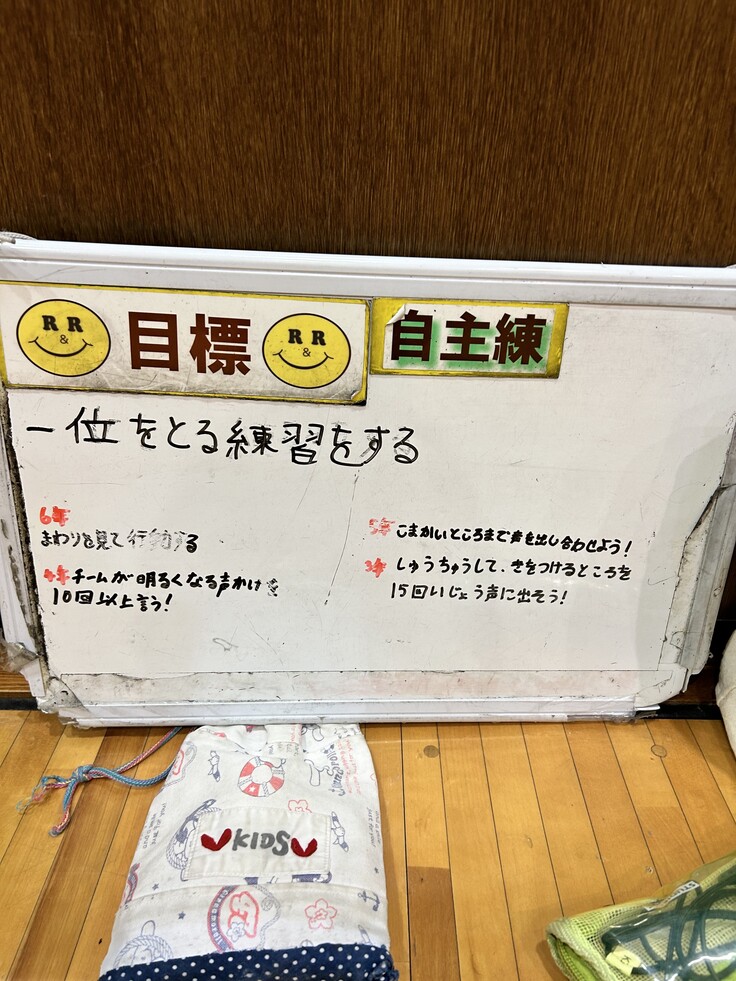 RR
&
目標
RR
&
自主練
一位をとる練習をする
6年
まわりを見て行動する
4年 チームが明るくなる声かけを
10回以上言う!
5年 こまかいところまで声を出し合わせよう!
3年 しゅうちゅうして、きをつけるところを
15回いじょう声に出そう!
KIDS